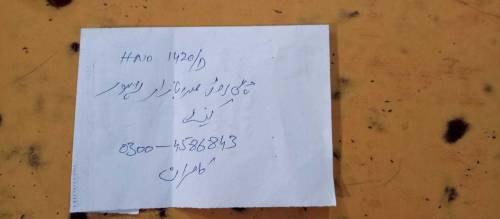 HAIO 1420/D
روڈ صدر بازار لاہور
کینٹ
0300-4586843
کامران